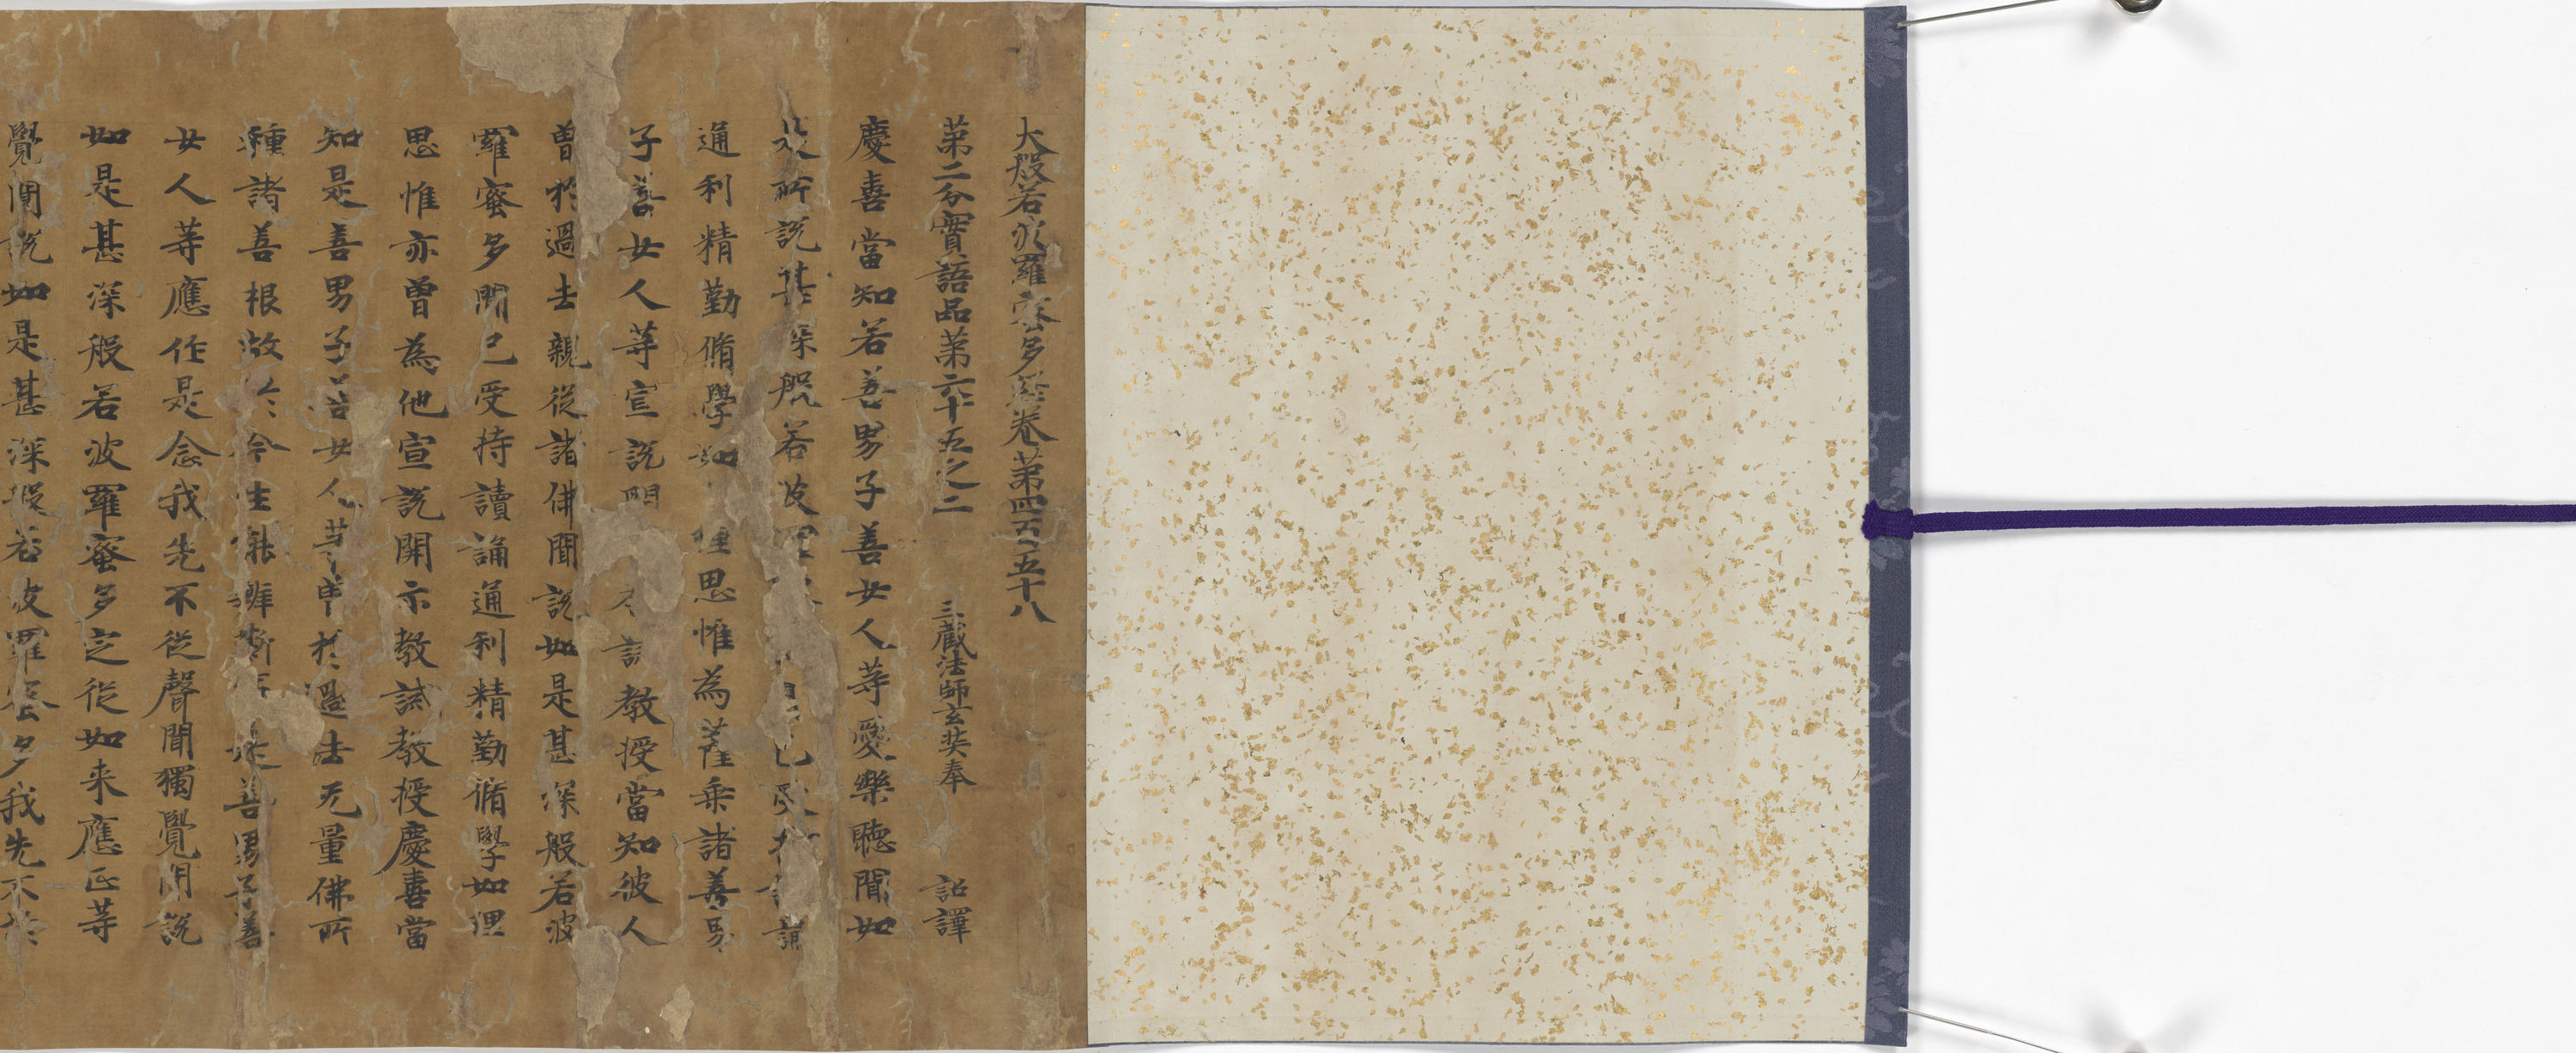 大般若波羅蜜多經卷第四百五十八
第二分實語品第六十五之二 三藏法師玄奘奉 詔譯
慶喜當知若善男子善女人等愛樂聽聞如
所說甚深般若波 已受持 誦
通利精勤脩學如 理思惟為菩薩乘諸善男
子善女人等宣說開 示 教授當知彼人
曾於過去親從諸佛聞說如是甚深般若波
羅蜜多聞已受持讀誦通利精勤脩學如理
思惟亦曾為他宣說開示教誡教授慶喜當
知是善男子善女人等曾於過去无量佛所
種諸善根故於今生能辦斯事是善男子善
女人等應作是念我先不從聲聞獨覺聞說
如是甚深般若波羅蜜多定從如来應正等
覺聞說如是甚深般若波羅蜜多我先不於